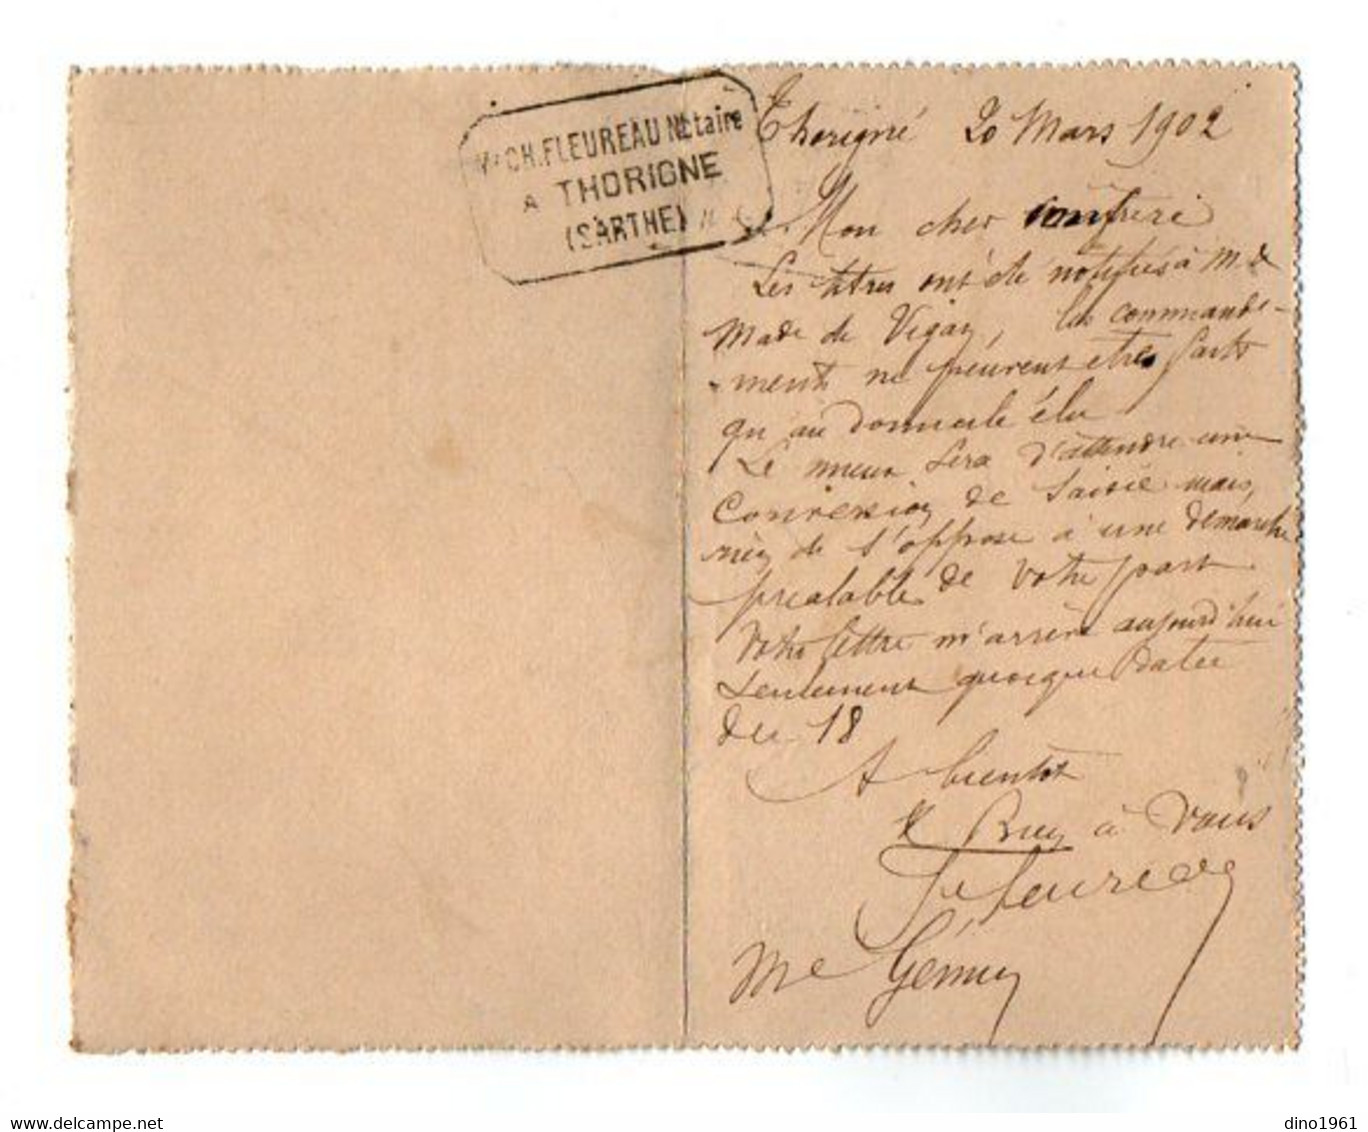 Me CH. FLEUREAU Notaire
A THORIGNE
(SARTHE)
Thorigné 20 Mars 1902
Mon cher confrere
Les titres ont éte notifiés à M. &
Made de Vigay, les commande-
ments ne peuvent etres faits
qu'au domicile élu
Le mieux sera d'attendre une
Conversion de Saisie mais
rien de s'oppose à une demarche
préalable de votre part
Votre lettre m'arrive aujourd'hui
seulement quoique datée
du 18
A bientot
& Bien à vous
Fleureau
Me Gémy
delcampe.net
dino1961